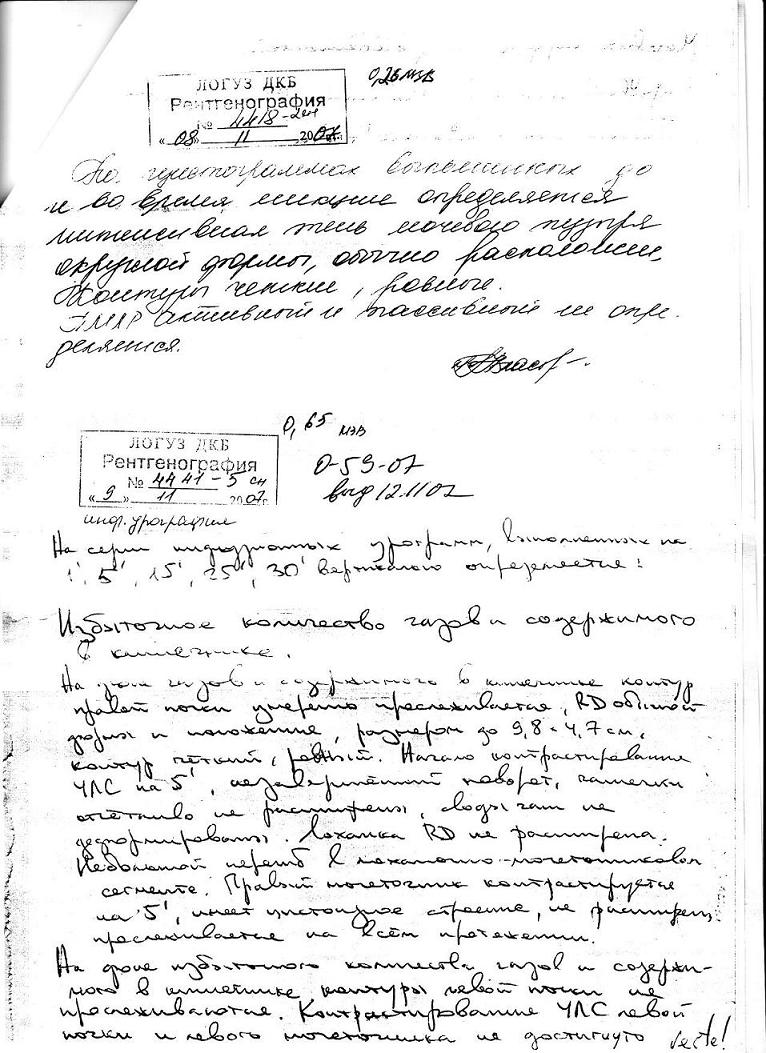 0,26 мзв
ЛОГУЗ ДКБ
Рентгенография
№ 4418-2сн
«08» 11 2007г.
По цистограммам выполненных до
и во время микции определяется
интенсивная тень мочевого пузыря
округлой формы, обычно расположен,
Контуры четкие, ровные.
ПМР активный и пассивный не опре-
деляется.
0,65 мзв
ЛОГУЗ ДКБ
Рентгенография
№ 4441-5 сн
«9» 11 2007г.
0-59-07
выд 12.11.07
инф. урография
На серии инфузионных урограмм, выполненных на
1', 5', 15', 25', 30' определяется:
Избыточное количество газов и содержимого
в кишечнике.
На фоне газов и содержимого в кишечнике контур
правой почки умеренно прослеживается, RD обычной
формы и положения, размером до 9,8 × 4,7 см,
контур чёткий, ровный. Начало контрастирования
ЧЛС на 5', незавершённый поворот, чашечки
отчётливо не расширены, своды чаш не
деформированы. Лоханка RD не расширена.
Небольшой перегиб в лоханочно-мочеточниковом
сегменте. Правый мочеточник контрастируется
на 5', имеет цистоидное строение, не расширен,
прослеживается на всём протяжении.
На фоне избыточного количества газов и содержи-
мого в кишечнике контуры левой почки не
прослеживаются. Контрастирование ЧЛС левой
почки и левого мочеточника не достигнуто verte!